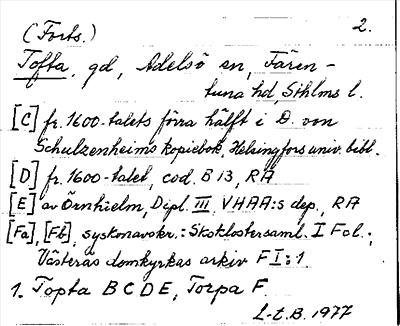 (Forts.) 2.
Tofta, gd, Adelsö sn, Fären-
tuna hd, Sthlms l.
[C] fr. 1600-talets förra hälft i D. von
Schulzenheims kopiebok, Helsingfors univ. bibl.
[D] fr. 1600-talet, cod. B 13, RA
[E] av Örnhielm, Dipl. III, VHAA:s dep., RA
[Fa], [Fb], syskonavskr.: Skoklostersaml. I Fol.;
Västerås domkyrkas arkiv F I:1
1. Topta B C D E, Torpa F.
L-t. B. 1977